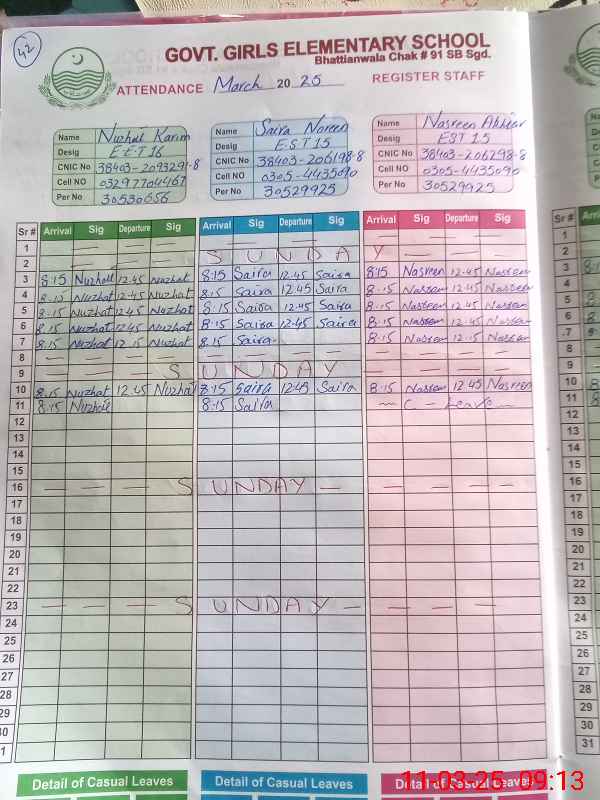 42
GOVT. GIRLS ELEMENTARY SCHOOL
Bhattianwala Chak # 91 SB Sgd.
ATTENDANCE March 2025 REGISTER STAFF
Name Nuzhat Karim
Desig E-E-T 16
CNIC No 38403-2093291-8
Cell NO 03297704467
Per No 30530656
Name Saira Noreen
Desig E-ST 15
CNIC No 38403-206198-8
Cell NO 0305-4435090
Per No 30529925
Name Nasreen Akhtar
Desig EST 15
CNIC No 38403-206298-8
Cell NO 0305-4435090
Per No 30529925
Sr # Arrival Sig Departure Sig Arrival Sig Departure Sig Arrival Sig Departure Sig
1
2 SUNDAY
3 8:15 Nuzhat 12:45 Nuzhat 8:15 Saira 12:45 Saira 8:15 Nasreen 12:45 Nasreen
4 8:15 Nuzhat 12:45 Nuzhat 8:15 Saira 12:45 Saira 8:15 Nasreen 12:45 Nasreen
5 8:15 Nuzhat 12:45 Nuzhat 8:15 Saira 12:45 Saira 8:15 Nasreen 12:45 Nasreen
6 8:15 Nuzhat 12:45 Nuzhat 8:15 Saira 12:45 Saira 8:15 Nasreen 12:45 Nasreen
7 8:15 Nuzhat 12:15 Nuzhat 8:15 Saira 8:15 Nasreen 12:15 Nasreen
8
9 SUNDAY
10 8:15 Nuzhat 12:45 Nuzhat 8:15 Saira 12:45 Saira 8:15 Nasreen 12:45 Nasreen
11 8:15 Nuzhat 8:15 Saira C - Leave
12
13
14
15
16 SUNDAY
17
18
19
20
21
22
23 SUNDAY
24
25
26
27
28
29
30
31
Detail of Casual Leaves Detail of Casual Leaves Detail of Casual Leaves
11-03-25 09:13